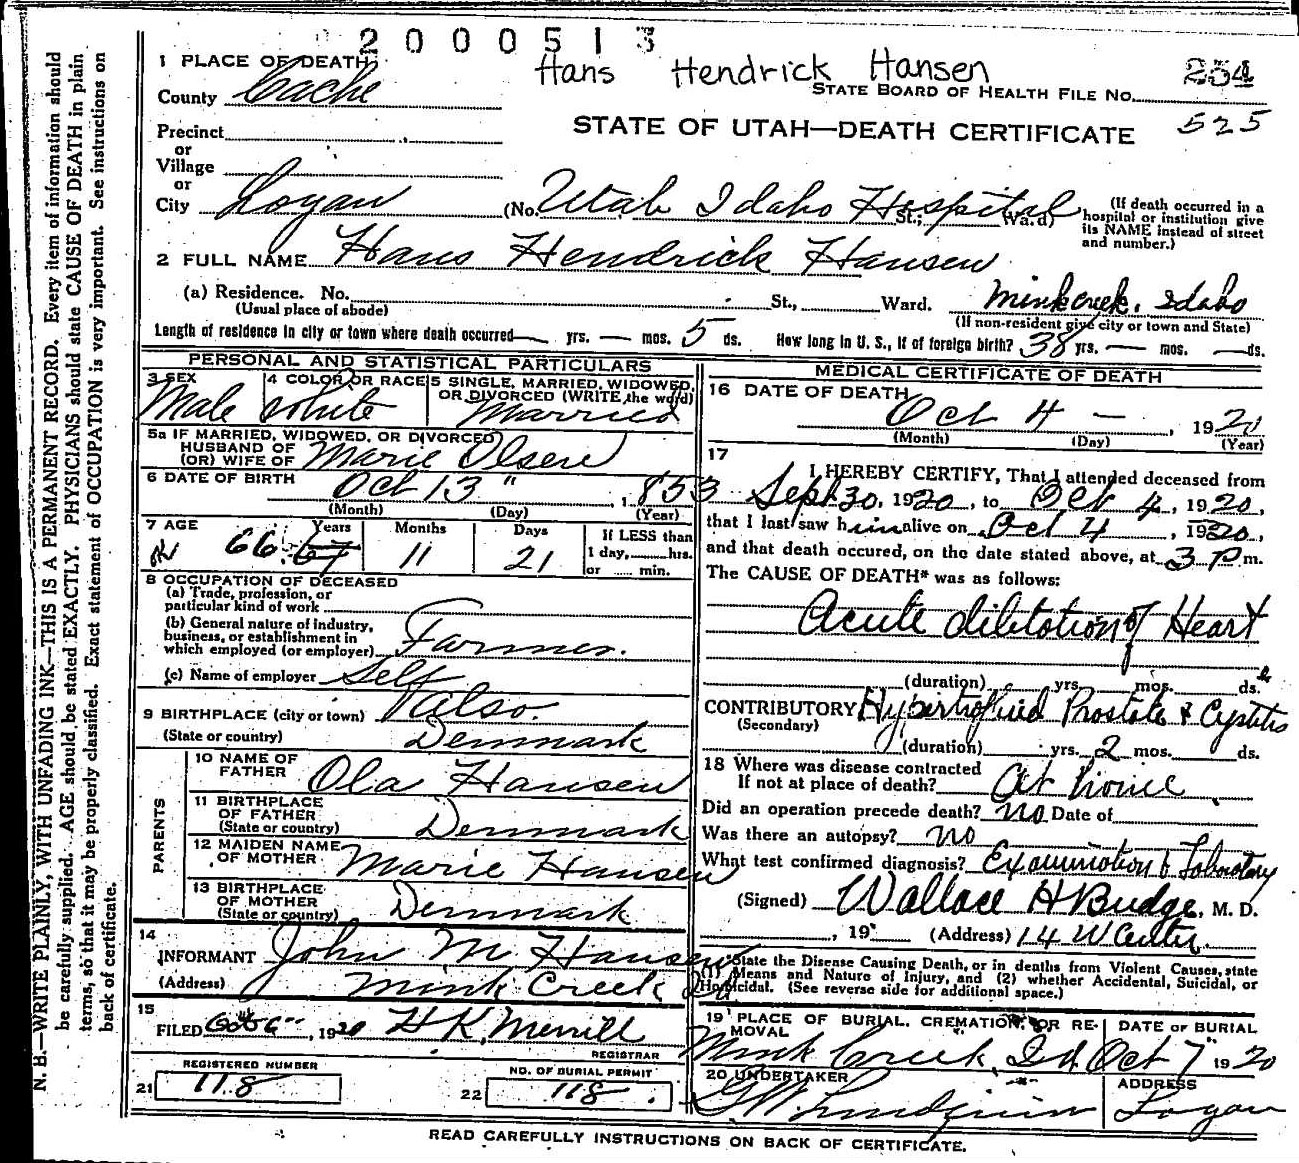 2000513
Hans Hendrick Hansen
254
525
1 PLACE OF DEATH,
County Cache
STATE BOARD OF HEALTH FILE No.
STATE OF UTAH—DEATH CERTIFICATE
Precinct
or
Village
or
City Logan (No. Utah Idaho Hospital St.; Ward)
(If death occurred in a hospital or institution give its NAME instead of street and number.)
2 FULL NAME Hans Hendrick Hansen
(a) Residence. No. St., Ward. Minkcreek, Idaho
(Usual place of abode) (If non-resident give city or town and State)
Length of residence in city or town where death occurred — yrs. — mos. 5 ds. How long in U. S., if of foreign birth? 38 yrs. — mos. — ds.
PERSONAL AND STATISTICAL PARTICULARS
3 SEX
Male
4 COLOR OR RACE
white
5 SINGLE, MARRIED, WIDOWED, OR DIVORCED (WRITE the word)
Married
5a IF MARRIED, WIDOWED, OR DIVORCED
HUSBAND OF
(OR) WIFE OF Marie Olsen
6 DATE OF BIRTH Oct 13 " , 1853
(Month) (Day) (Year)
7 AGE Years Months Days If LESS than
66 67 11 21 1 day, hrs.
or min.
8 OCCUPATION OF DECEASED
(a) Trade, profession, or
particular kind of work
(b) General nature of industry,
business, or establishment in
which employed (or employer) Farmer.
(c) Name of employer Self
9 BIRTHPLACE (city or town)
(State or country) Denmark
PARENTS
10 NAME OF
FATHER Ola Hansen
11 BIRTHPLACE
OF FATHER
(State or country) Denmark
12 MAIDEN NAME
OF MOTHER Marie Hansen
13 BIRTHPLACE
OF MOTHER
(State or country) Denmark
14
INFORMANT John M. Hansen
(Address) Mink Creek Id
15
FILED Oct 6 , 1920 H K Merrill
REGISTRAR
REGISTERED NUMBER
21 118
NO. OF BURIAL PERMIT
22 118
MEDICAL CERTIFICATE OF DEATH
16 DATE OF DEATH
Oct 4 — , 1920
(Month) (Day) (Year)
17
I HEREBY CERTIFY, That I attended deceased from
Sept 30, 1920, to Oct 4, 1920,
that I last saw him alive on Oct 4, 1920,
and that death occured, on the date stated above, at 3 P m.
The CAUSE OF DEATH* was as follows:
Acute dilitation of Heart
(duration) yrs. mos. ds.
CONTRIBUTORY Hypertrofied Prostate & Cystitis
(Secondary)
(duration) yrs. 2 mos. ds.
18 Where was disease contracted
If not at place of death? At home
Did an operation precede death? no Date of
Was there an autopsy? no
What test confirmed diagnosis? Examination & Laboratory
(Signed) Wallace H Budge, M. D.
, 19 (Address) 14 W Center
*State the Disease Causing Death, or in deaths from Violent Causes, state
(1) Means and Nature of Injury, and (2) whether Accidental, Suicidal, or
Homicidal. (See reverse side for additional space.)
19 PLACE OF BURIAL, CREMATION, OR REMOVAL
Mink Creek, Id
DATE OF BURIAL
Oct 7 1920
20 UNDERTAKER
ADDRESS
Logan
READ CAREFULLY INSTRUCTIONS ON BACK OF CERTIFICATE.
N. B.—WRITE PLAINLY, WITH UNFADING INK—THIS IS A PERMANENT RECORD. Every item of information should
be carefully supplied. AGE should be stated EXACTLY. PHYSICIANS should state CAUSE OF DEATH in plain
terms, so that it may be properly classified. Exact statement of OCCUPATION is very important. See instructions on
back of certificate.